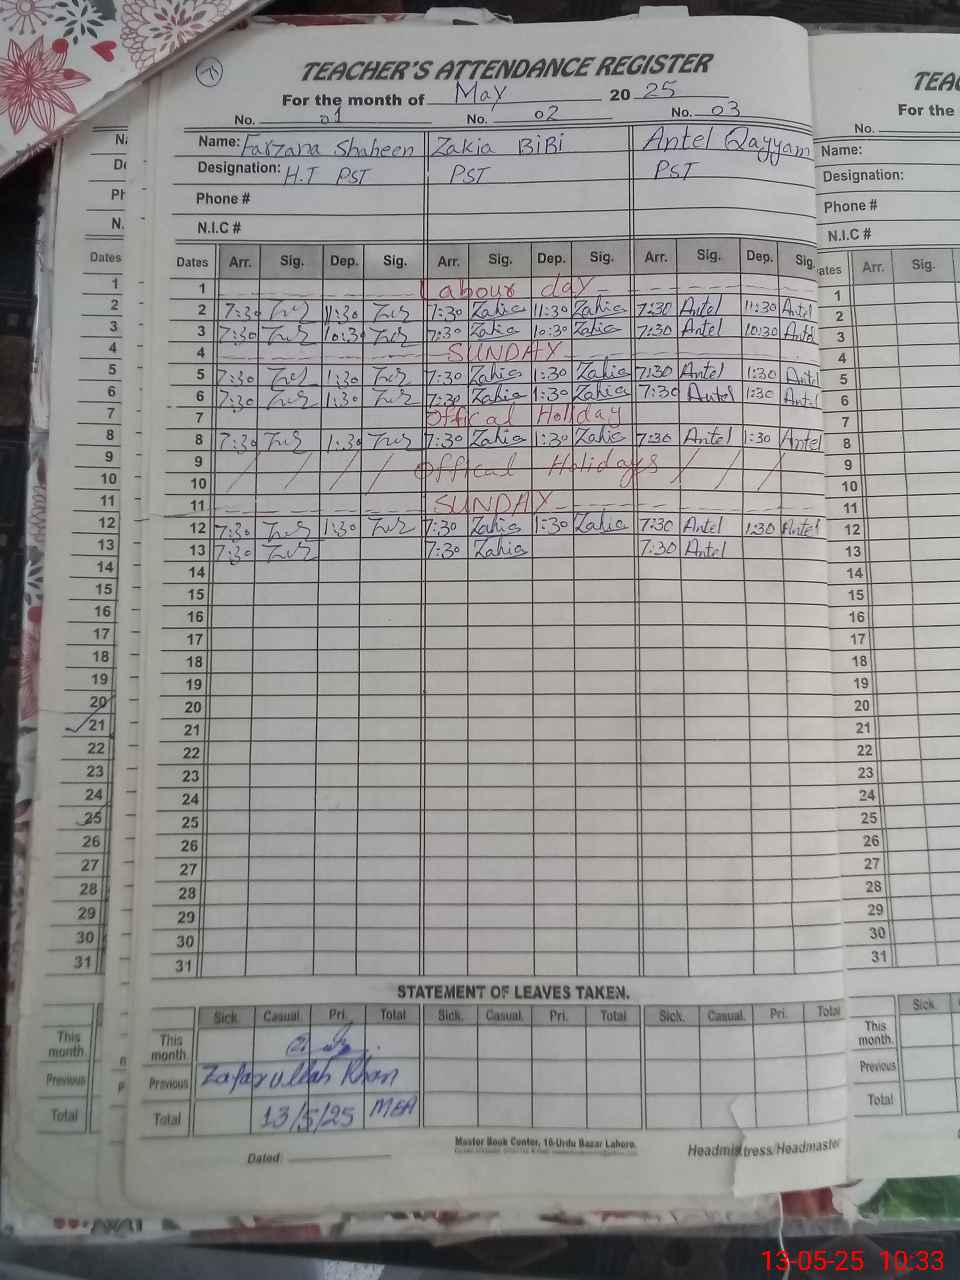 TEACHER'S ATTENDANCE REGISTER
For the month of May 2025
No. 01 No. 02 No. 03
Name: Farzana Shaheen Zakia BiBi Antel Qayyam
Designation: H.T PST PST PST
Phone #
N.I.C #
Dates Arr. Sig. Dep. Sig. Arr. Sig. Dep. Sig. Arr. Sig. Dep. Sig.
1 Labour day
2 7:30 11:30 7:30 Zakia 11:30 Zakia 7:30 Antel 11:30 Antel
3 7:30 10:30 7:30 Zakia 10:30 Zakia 7:30 Antel 10:30 Antel
4 SUNDAY
5 7:30 1:30 7:30 Zakia 1:30 Zakia 7:30 Antel 1:30 Antel
6 7:30 1:30 7:30 Zakia 1:30 Zakia 7:30 Antel 1:30 Antel
7 Offical Holiday
8 7:30 1:30 7:30 Zakia 1:30 Zakia 7:30 Antel 1:30 Antel
9 Offical Holidays
10
11 SUNDAY
12 7:30 1:30 7:30 Zakia 1:30 Zakia 7:30 Antel 1:30 Antel
13 7:30 7:30 Zakia 7:30 Antel
14
15
16
17
18
19
20
21
22
23
24
25
26
27
28
29
30
31
STATEMENT OF LEAVES TAKEN.
Sick. Casual. Pri. Total Sick. Casual. Pri. Total Sick. Casual. Pri. Total
This month.
Previous Zafarullah Khan
Total 13/5/25 MEA
Master Book Center, 16-Urdu Bazar Lahore.
Dated: Headmistress/Headmaster
TEA
For the
No.
Name:
Designation:
Phone #
N.I.C #
ates Arr. Sig.
1
2
3
4
5
6
7
8
9
10
11
12
13
14
15
16
17
18
19
20
21
22
23
24
25
26
27
28
29
30
31
Sick.
This month.
Previous
Total
Dates
1
2
3
4
5
6
7
8
9
10
11
12
13
14
15
16
17
18
19
20
21
22
23
24
25
26
27
28
29
30
31
This month.
Previous
Total
13-05-25 10:33